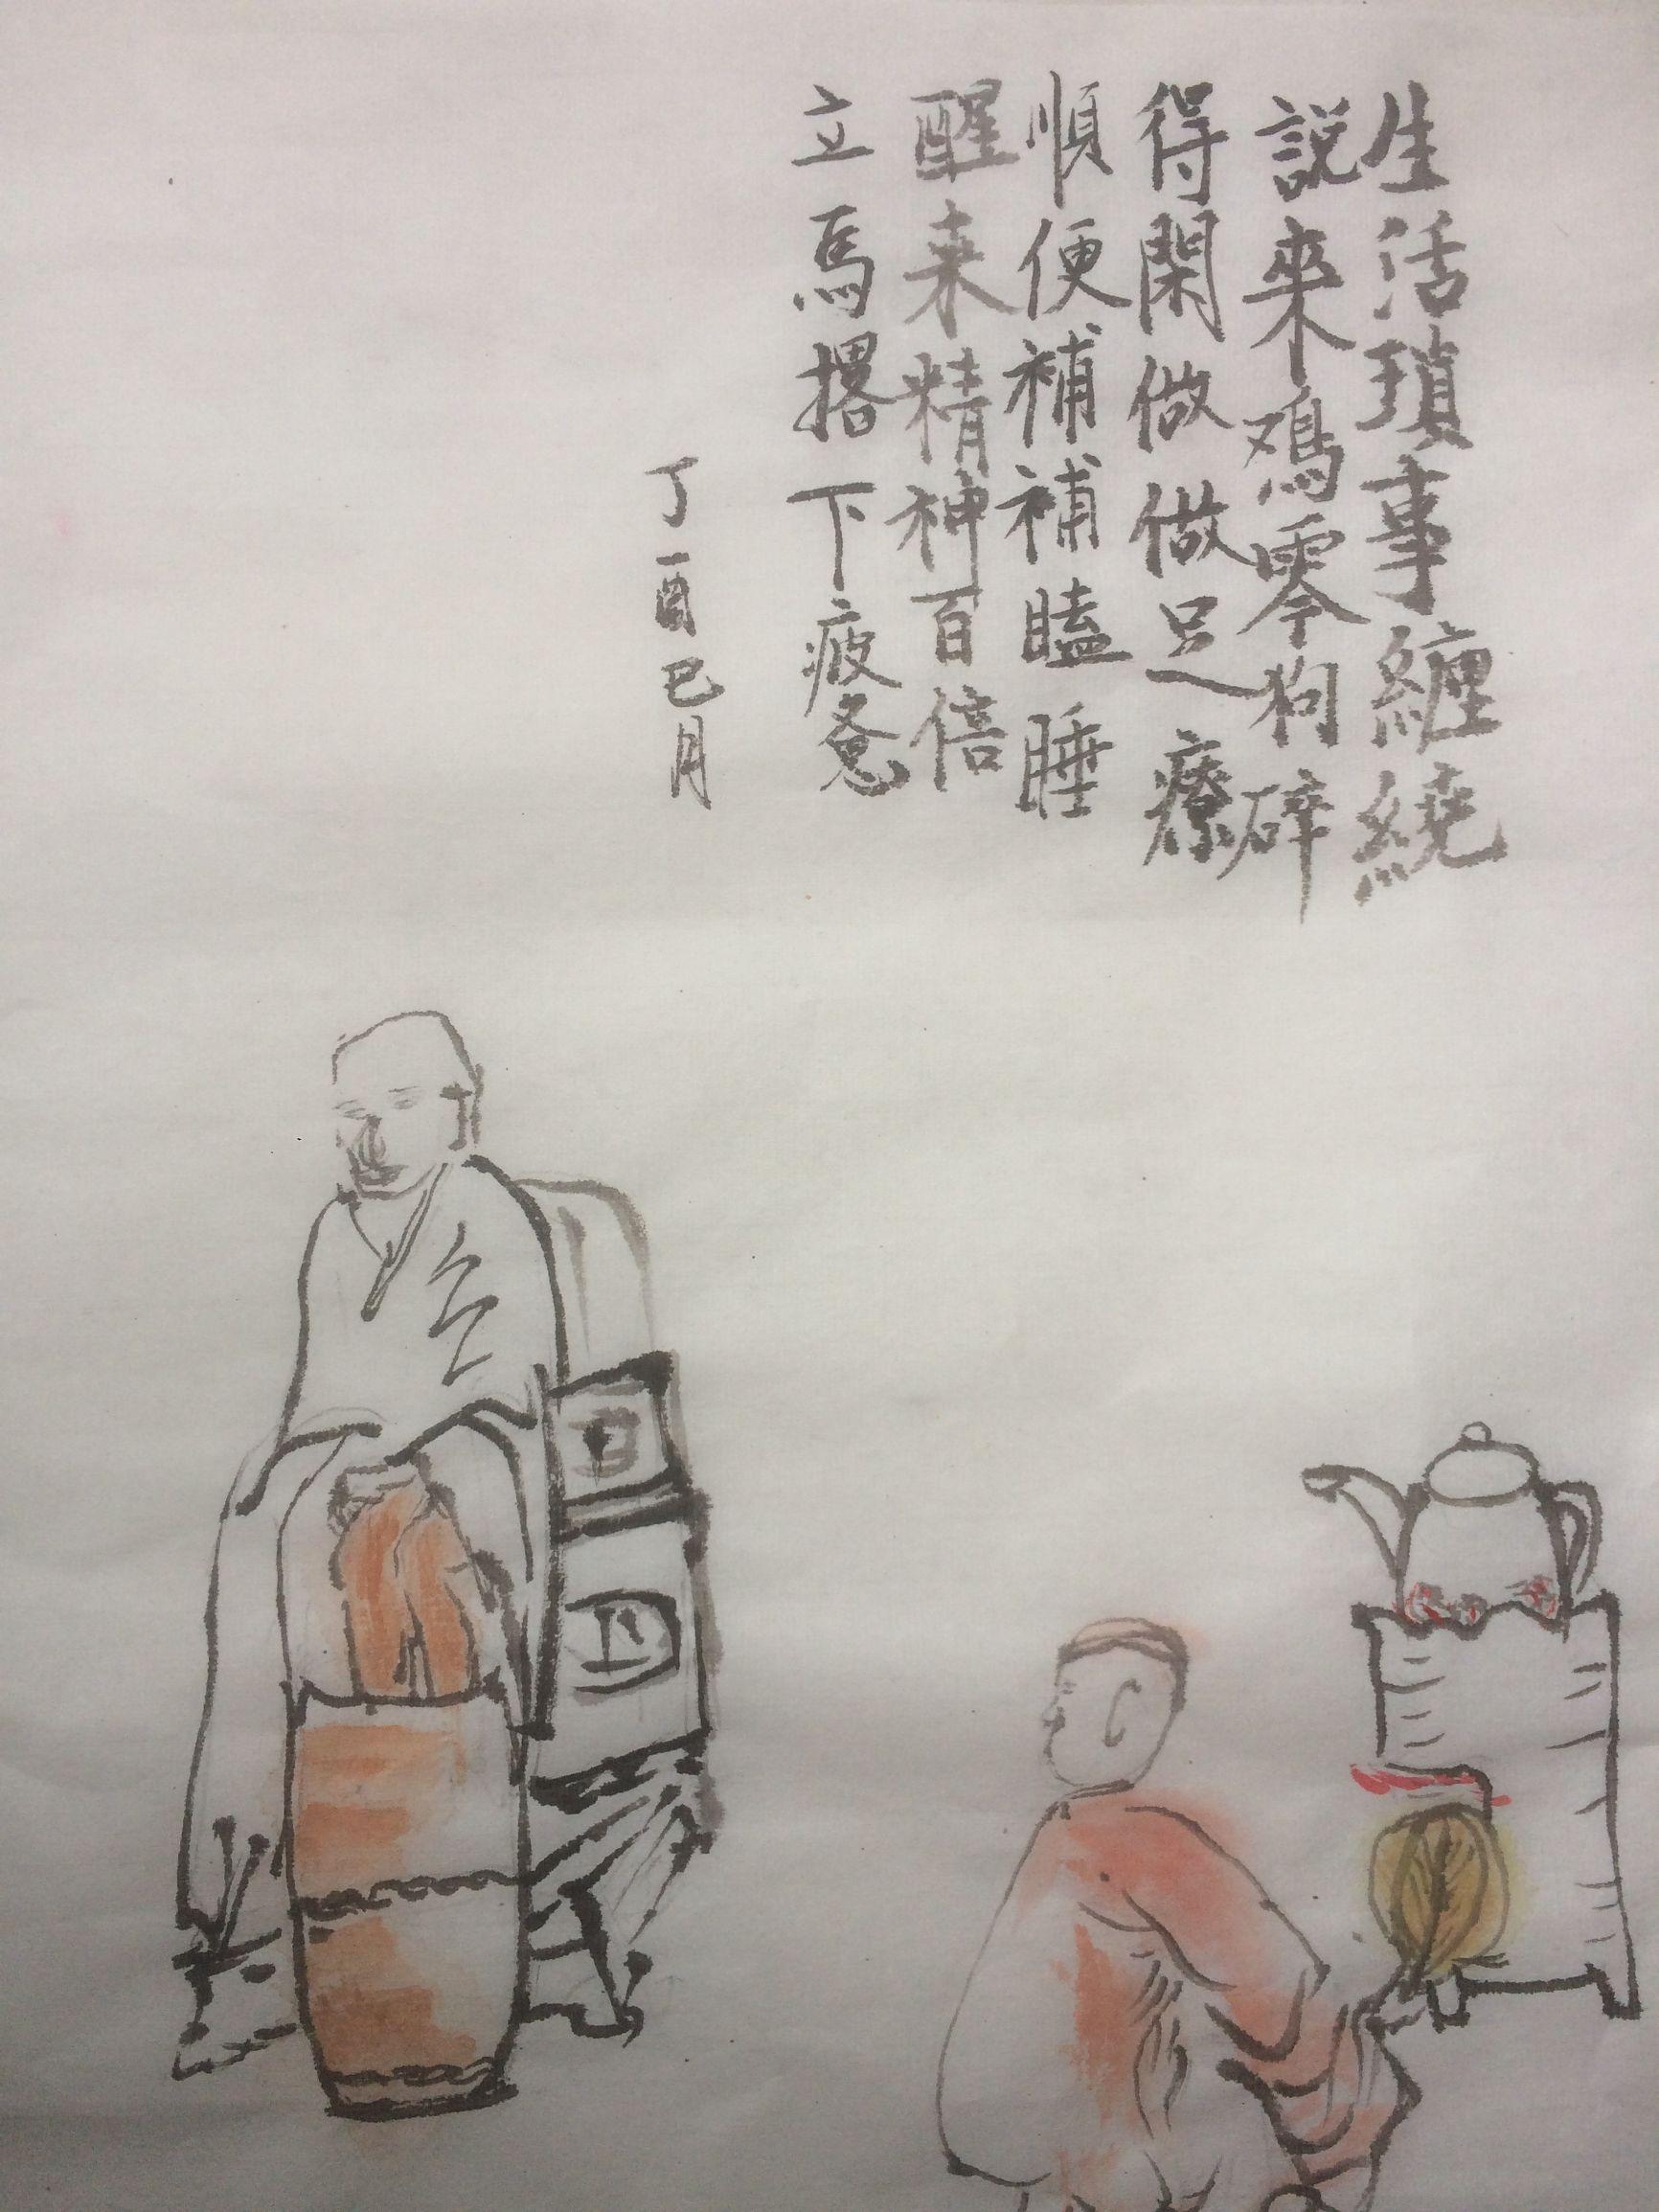 生活瑣事纏繞
説來鳮零狗碎
得閑做做足療
順便補補瞌睡
醒来精神百倍
立馬撂下疲惫
丁酉巳月